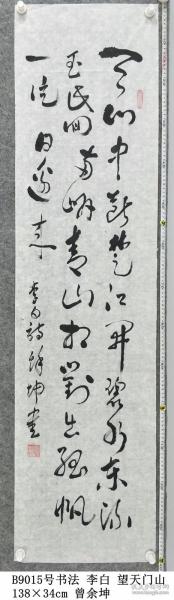 天门中断楚江開碧水东流
至此回两岸青山相對出孤帆
一片日邊来 李白詩 馀坤書
B9015号书法 李白 望天门山
138×34cm 曾余坤